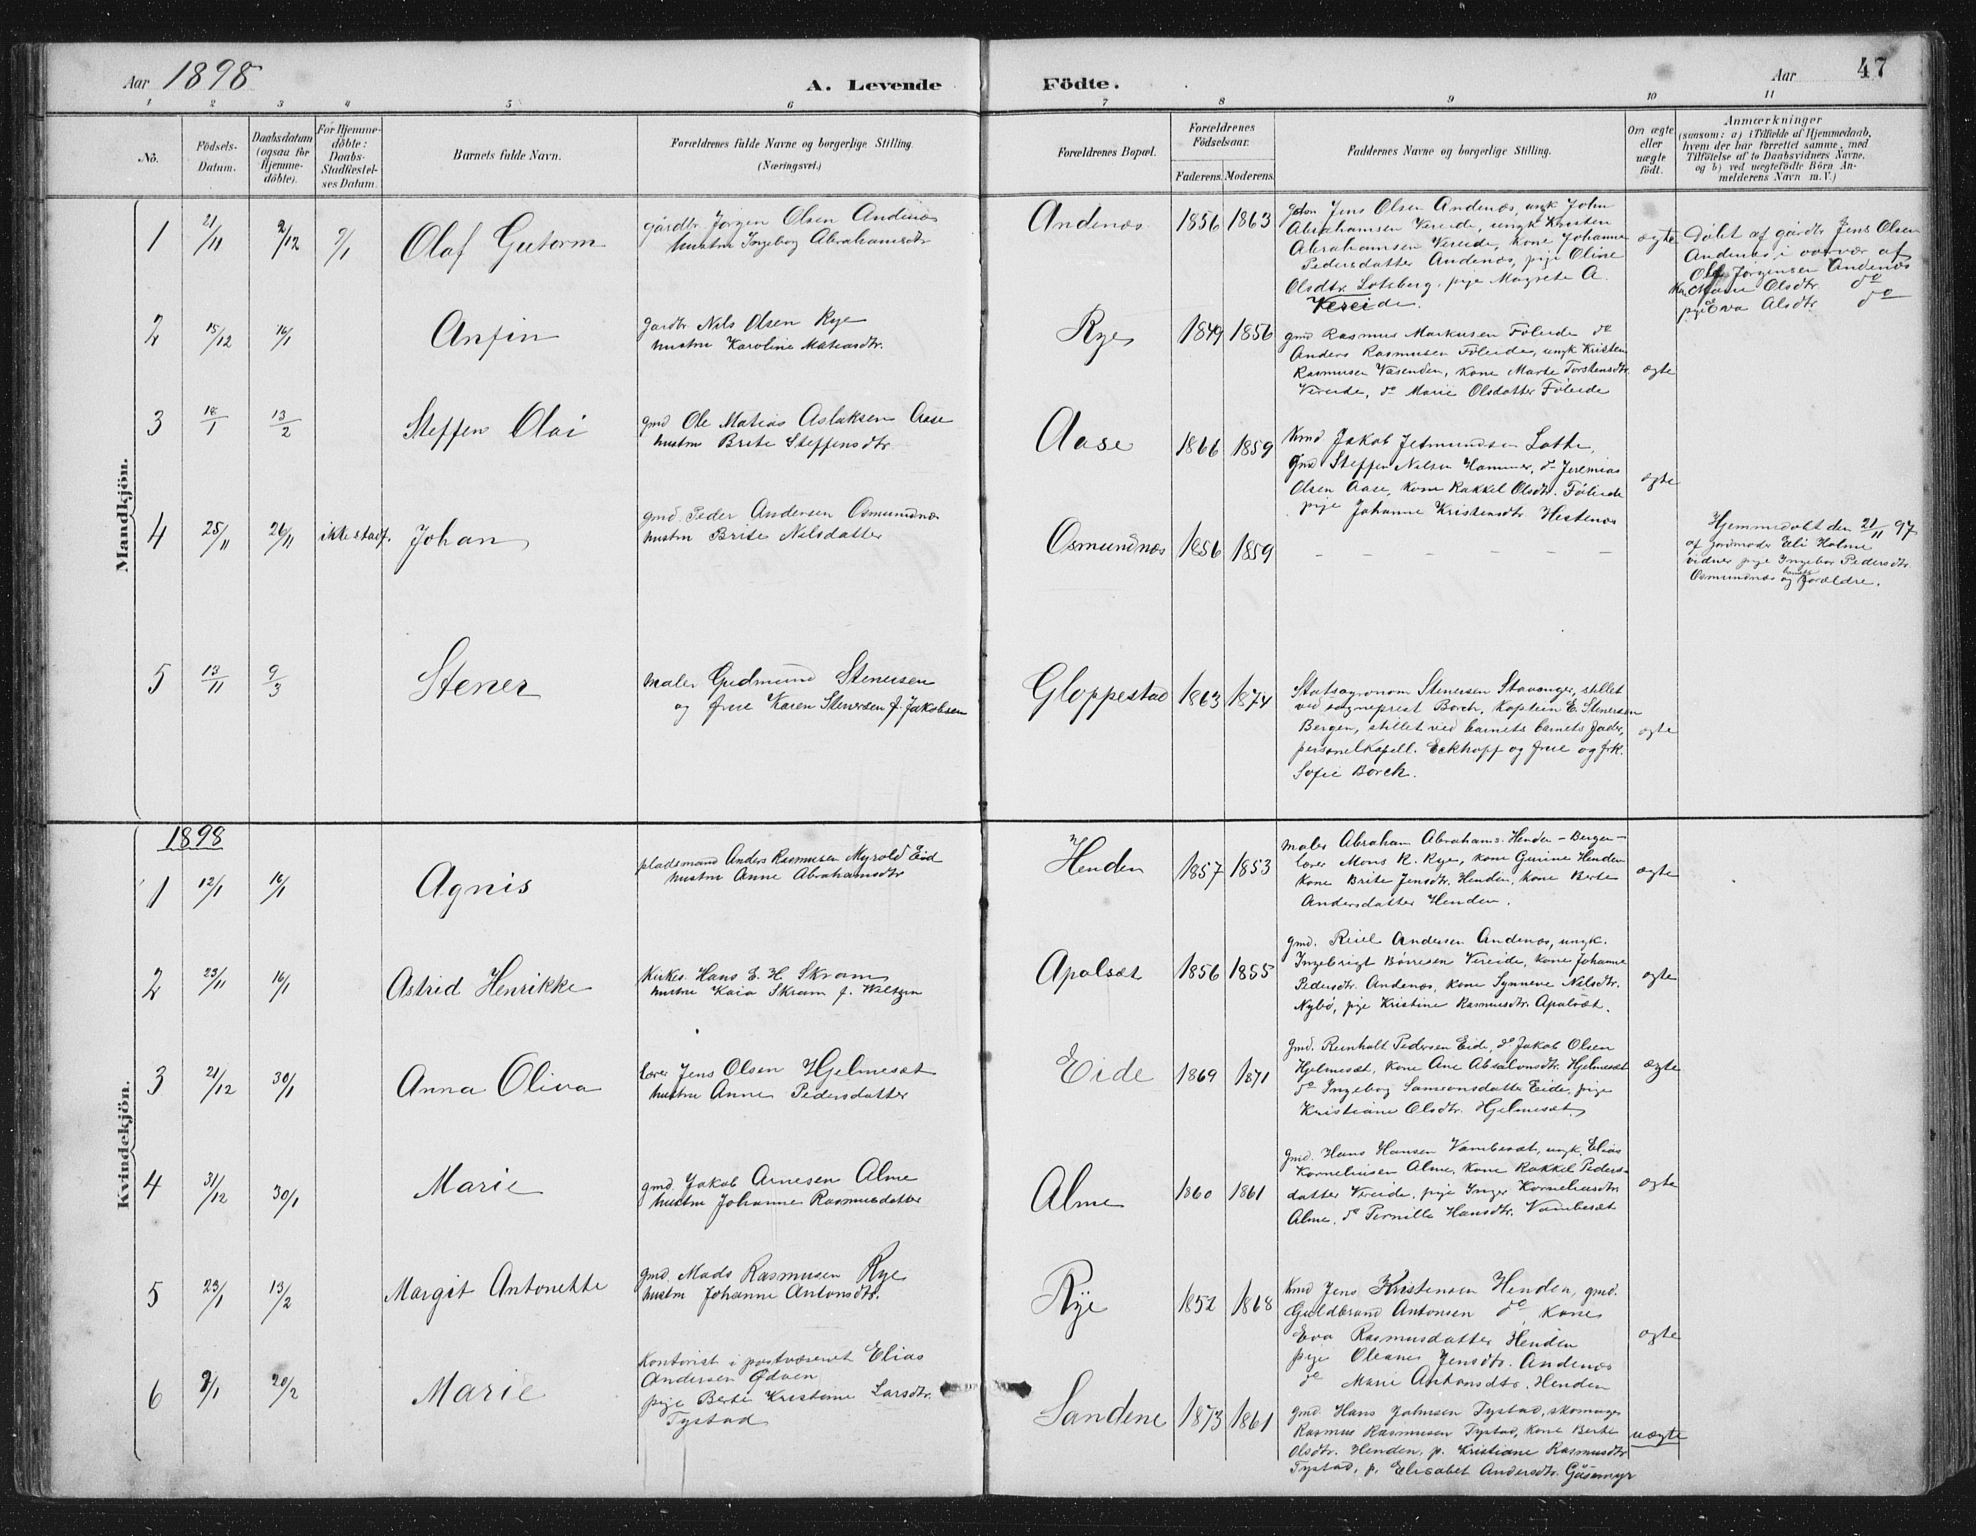 Aar 1898 A. Levende Födte. Aar 47
1 2 3 4 5 6 7 8 9 10 11
No. Födsels-Datum. Daabsdatum (ogsaa for Hjemme-döbte). For Hjemme-döbte: Daabs-Stadfæstel-ses Datum. Barnets fulde Navn. Forældrenes fulde Navne og borgerlige Stilling. (Næringsvei.) Forældrenes Bopæl. Forældrenes Födselsaar. Faderens. Moderens. Faddernes Navne og borgerlige Stilling. Om ægte eller uægte födt. Anmærkninger
(saasom: a) i Tilfælde af Hjemmedaab, hvem der har forrettet samme, med Tilföielse af to Daabsvidners Navne, og b) ved uægtefödte Börn An-melderens Navn m. V.)
Mandkjön.
1 21/11 2/12 9/1 Olaf Gutorm
gårdbr Jørgen Olsen Andenæs
hustru Ingebog Abrahamsdtr
Andenæs 1856 1863
Jens Olsen Andenæs, ungk John
Abrahamsen Vereide, ungk Kristen
Abrahamsen Vereide, kone Johanne
Pedersdatter Andenæs, pige Oline
Olsdtr Lotsberg, pige Magrete A.
Vereide.
ægte
Døbt af gårdbr Jens Olsen
Andenæs i overvær af
Jørgensen Andenæs
Marie Olsdtr do
pige Eva Alsdtr. do
2 15/12 16/1 Anfin
gardbr Nils Olsen Rye
hustru Karoline Matiasdtr.
Rye 1849 1856
gmd Rasmus Markusen Føleide do
Anders Rasmusen Føleide, ungk Kristen
Rasmusen Vasenden, kone Marte Torstensdtr.
Vereide, do Marie Olsdatter Føleide
ægte
3 18/1 13/2 Steffen Olai
gmd Ole Matias Aslaksen Aase
hustru Brite Steffensdtr.
Aase 1866 1859
Kmd Jakob Jetmundsen Lothe,
Gmd Steffen Nilsen Hammer, do Jeremias
Olsen Aase, kone Rakkel Olsdtr. Føleide
pige Johanne Kristensdtr Hestenæs
ægte
4 25/11 26/11 ikke stadf. Johan
gmd. Peder Andersen Osmundnæs
hustru Brite Nilsdatter
Osmundnæs 1856 1859
– – – – – –
Hjemmedøbt den 21/11 97
af jordmoder Eli Holme
vidner pige Ingebor Pedersdtr
Osmundnæs og barnets forældre.
5 13/11 9/3 Stener
maler Gudmund Stenersen
og frue Karen Stenersen f. Jakobsen
Gloppestad 1863 1874
Statsagronom Stenersen Stavanger, stillet
ved sogneprest Borch, Kaptein E. Stenersen
Bergen, stillet ved barnets barnets fader,
personelkapell. Eckhoff og frue og frk.
Sofie Borch.
ægte
1898
Kvindekjön.
1 12/1 16/1 Agnis
pladsmand Anders Rasmusen Myrold Eid
hustru Anne Abrahamsdtr
Henden 1857 1853
maler Abraham Abrahams. Henden – Bergen –
lærer Mons R. Rye, kone Gurine Henden
kone Brite Jensdtr. Henden, kone Berte
Andersdatter Henden.
ægte
2 23/11 16/1 Astrid Henrikke
kirkes. Hans E. H. Skram
hustru Kaia Skram f. Weltzin
Apalsæt 1856 1855
gmd. Reiel Andersen Andenæs, ungk.
Ingebrigt Børresen Vereide, kone Johanne
Pedersdtr. Andenæs, kone Synneve Nilsdtr.
Nybø, pige Kristine Rasmusdtr. Apalsæt.
ægte
3 21/12 30/1 Anna Oliva
lærer Jens Olsen Hjelmesæt
hustru Anne Pedersdatter
Eide 1869 1871
gmd. Reinholt Pedersen Eide, do Jakob Olsen
Hjelmesæt, kone Ane Absalonsdtr. Hjelmesæt
do Ingebog Samsonsdatter Eide, pige
Kristiane Olsdtr. Hjelmesæt
ægte
4 31/12 30/1 Marie
gmd. Jakob Arnesen Alme
hustru Johanne Rasmusdatter
Alme 1860 1861
gmd. Hans Hansen Vambesæt, ungk. Elias
Korneliusen Alme, kone Rakkel Peders-
datter Vereide, pige Inger Korneliusdtr
Alme, do Pernille Hansdtr. Vambesæt
ægte
5 23/1 13/2 Margit Antonette
gmd. Mads Rasmusen Rye
hustru Johanne Antonsdtr.
Rye 1852 1868
Kmd Jens Kristensen Henden, gmd.
Guldbrand Antonsen do kone
Eva Rasmusdatter Henden
pige Oleane Jensdtr. Andenæs
do Marie Antonsdtr. Henden
ægte
6 9/1 20/2 Marie
Kontorist i postvæsenet Elias
Andersen Ødven
pige Berte Kristine Larsdtr.
Tystad
Sandene 1873 1861
gmd. Hans Johnsen Tystad, skomager
Rasmus Rasmusen Tystad, kone Berte
Olsdtr. Henden, p. Kristiane Rasmusdtr
Tystad, p. Elisabet Andersdtr. Gåsemyr
uægte